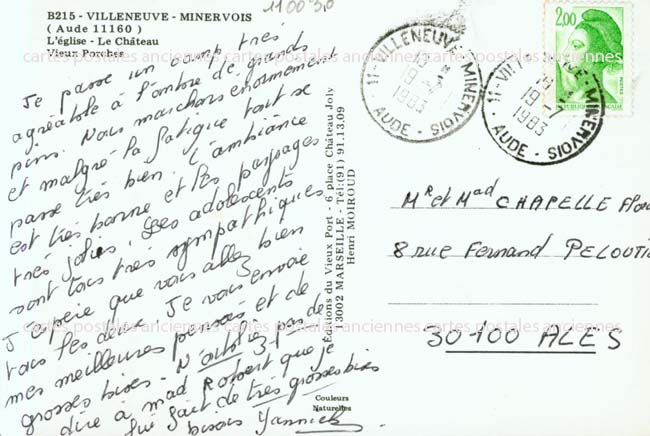 110030
B215 - VILLENEUVE - MINERVOIS
( Aude 11160 )
L'église - Le Château
Vieux Porches
Je passe un camp très
agréable à l'ombre de grands
pins. Nous marchons énormément
et malgré la fatigue tout se
passe très bien. L'ambiance
est très bonne et les paysages
très jolies. Les adolescents
sont tous très sympathiques
J'espère que vous allez bien
tous les deux. Je vous envoie
mes meilleures pensées et de
grosses bises. N'oubliez pas de
dire à mad Robert que je
lui fait de très grosses bises
bisous Yannick
Éditions du Vieux Port - 6 place Château Joly
13002 MARSEILLE - Tél:(91) 91.13.09
Henri MOIROUD
Couleurs
Naturelles
11-VILLENEUVE-MINERVOIS
19-7
1983
AUDE
11-VILLENEUVE-MINERVOIS
19-7
1983
AUDE
2,00
POSTES
RÉPUBLIQUE FRANÇAISE
Mr et Mad CHAPELLE
8 rue Fernand PELOUTI
30100 ALES
cartes postales anciennes cartes postales anciennes cartes postales anciennes
cartes postales anciennes cartes postales anciennes cartes postales anciennes